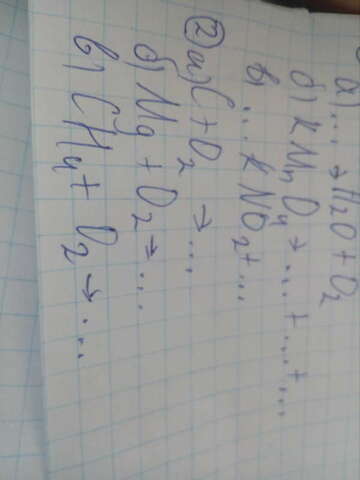 а) ... → H₂O + O₂
б) KMnO₄ → ... + ... + ...
в) ... KNO₂ + ...
② а) C + O₂ → ...
б) Mg + O₂ → ...
в) CH₄ + O₂ → ...